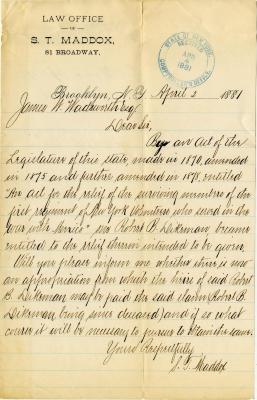 LAW OFFICE
OF
S. T. MADDOX,
81 BROADWAY.
STATE OF NEW YORK
RECEIVED
APR
4
1881
COMPTROLLER'S OFFICE
Brooklyn, N.Y. April 2 1881
James W. Wadsworth Esq
Dear Sir,
By an Act of the
Legislature of this state, made in 1870, amended
in 1875 and further amended in 1878, entitled
"An act for the relief of the surviving members of the
first regiment of New York Volunteers who served in the
war with Mexico" one Robert B. Dikeman became
entitled to the relief therein intended to be given
Will you please inform me whether there is now
an appropriation from which the heirs of said Robert
B. Dikeman may be paid the said claim (Robert B.
Dikeman, being since deceased) and if so what
course it will be necessary to pursue to obtain the same.
Yours Respectfully
S. T. Maddox